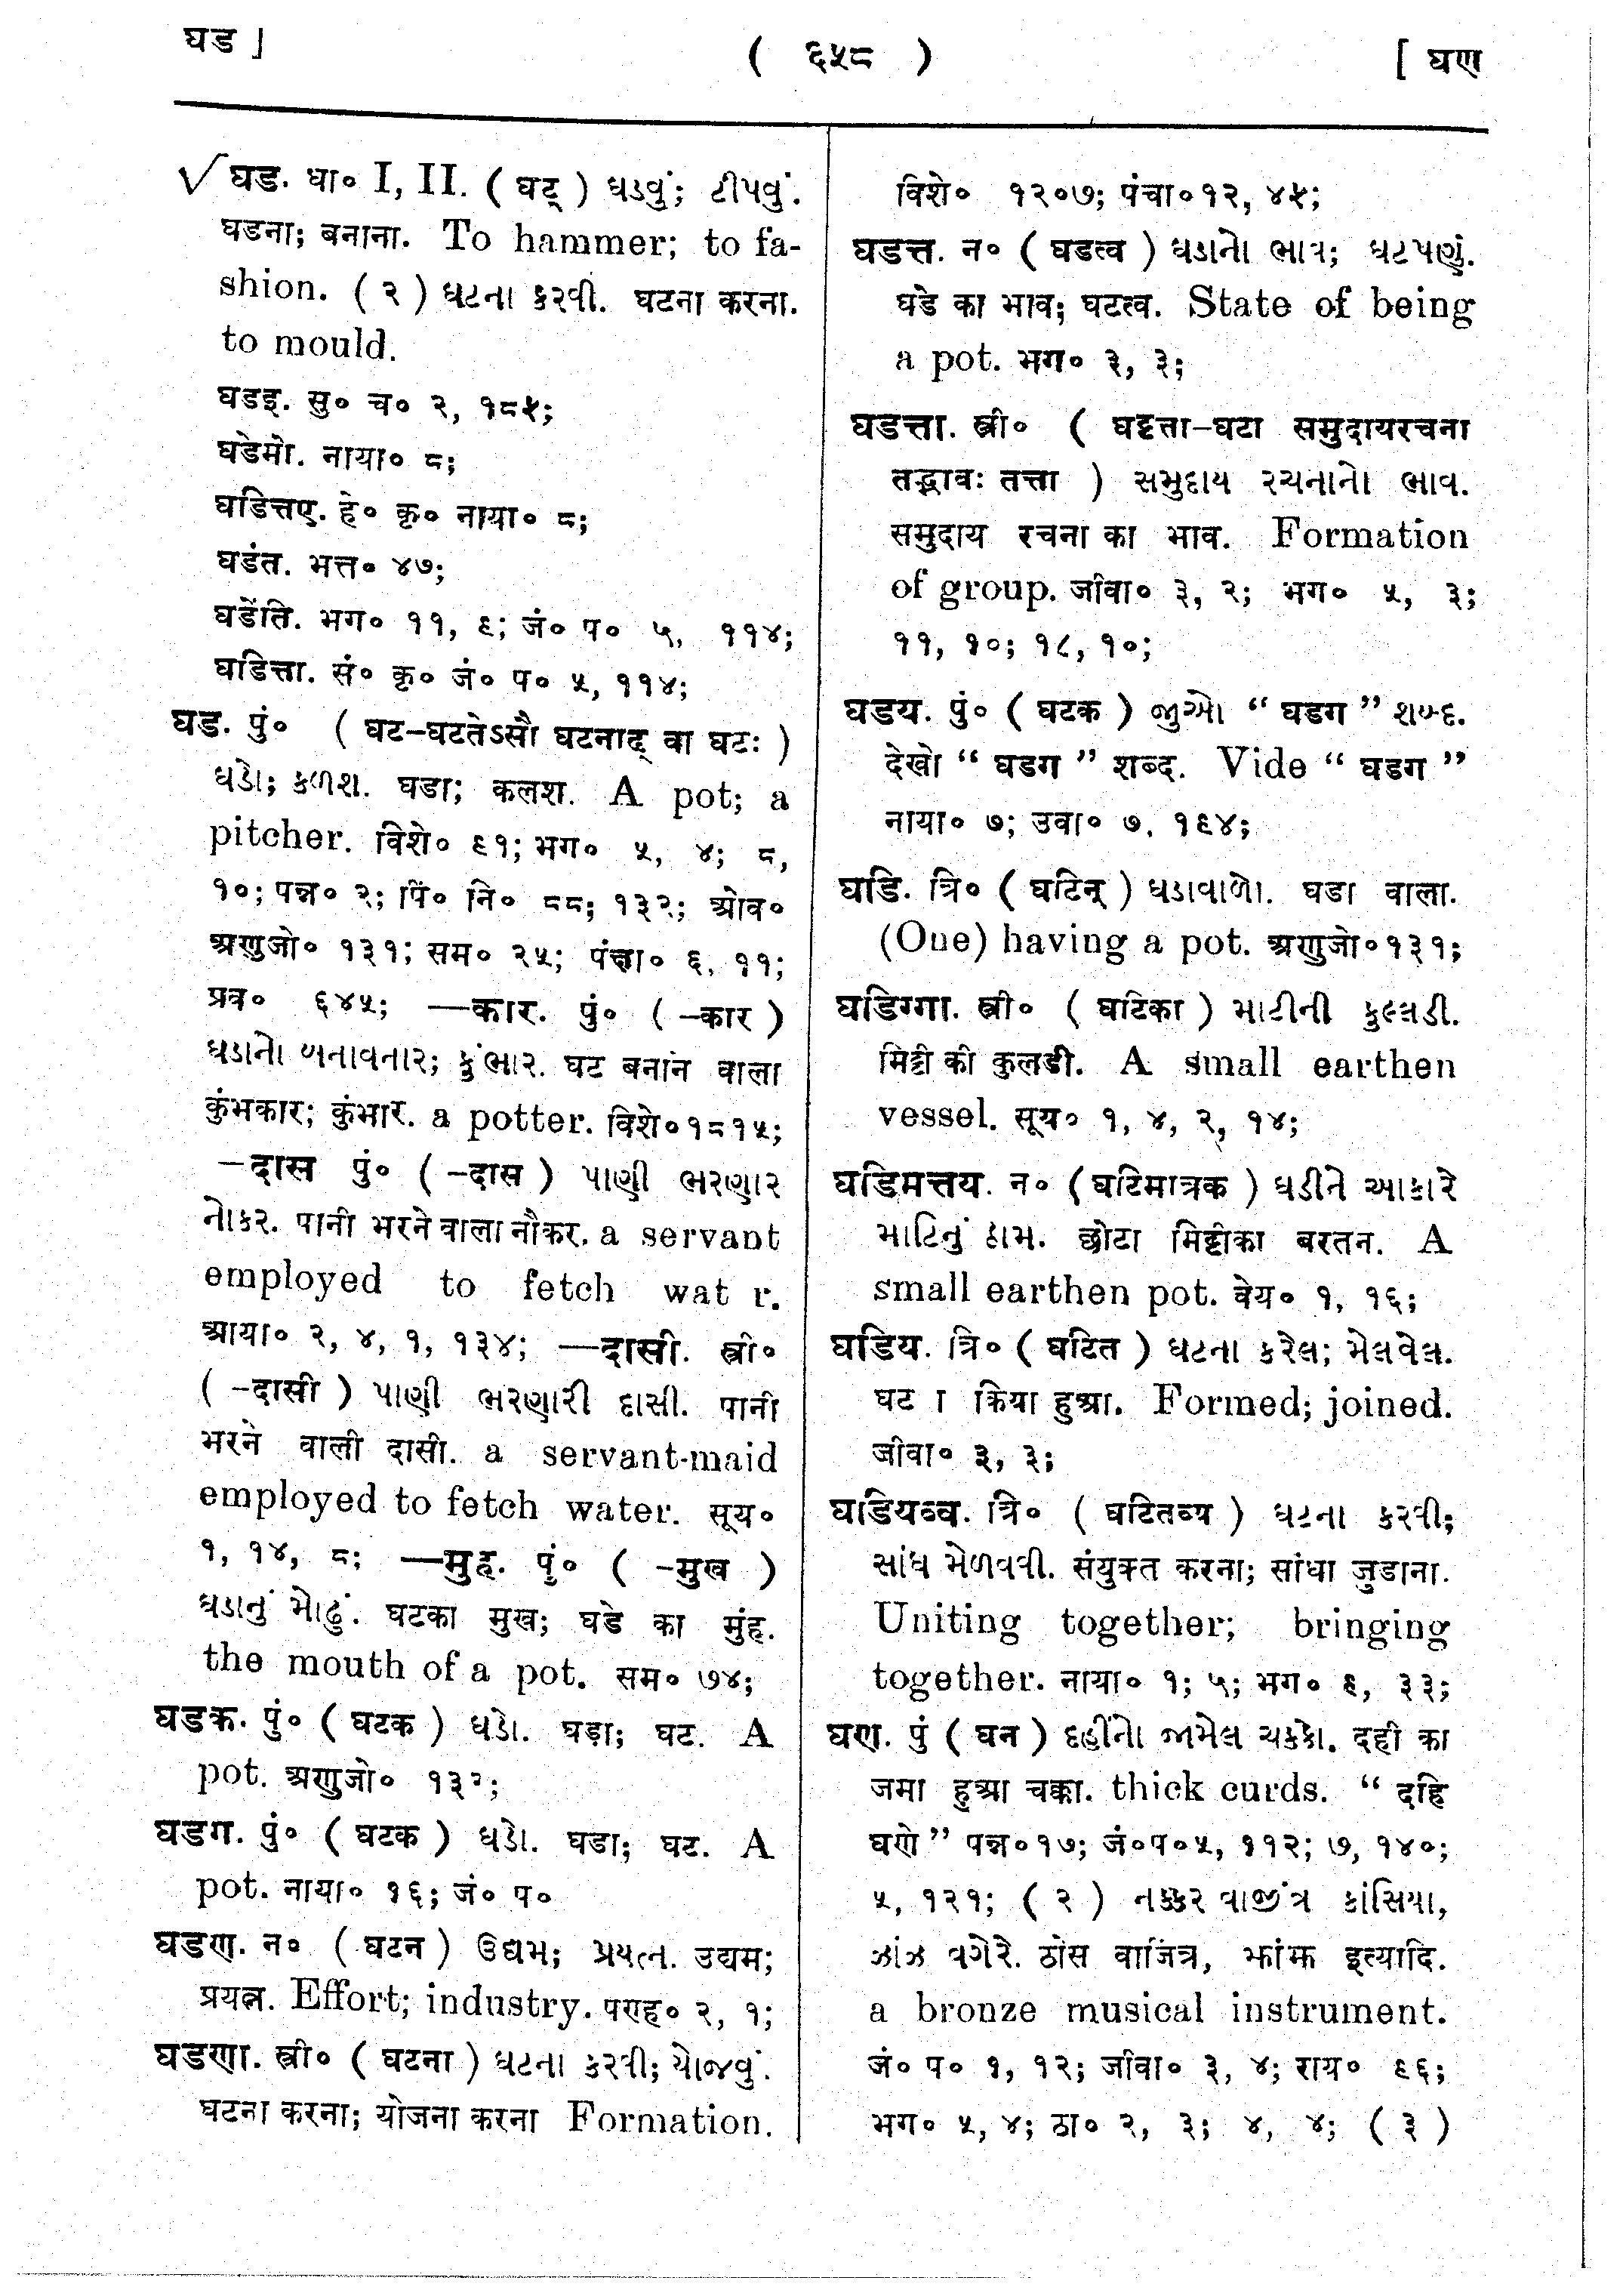 घड ]
( ६५८ )
[ घण
√ घड. धा० I, II. ( घट् ) ઘડવું; ટીપવું.
घडना; बनाना. To hammer; to fa-
shion. ( २ ) ઘટના કરવી. घटना करना.
to mould.
घडइ. सु० च० २, १८५;
घडेमो. नाया० ८;
घडित्तए. हे० कृ० नाया० ८;
घडंत. भत्त० ४७;
घडेंति. भग० ११, ९; जं० प० ५, ११४;
घडित्ता. सं० कृ० जं० प० ५, ११४;
घड. पुं० ( घट-घटतेऽसौ घटनाद् वा घटः )
ઘડો; કળશ. घडा; कलश. A pot; a
pitcher. विशे० ६१; भग० ५, ४; ८,
१०; पन्न० २; पिं० नि० ८८; १३२; ओव०
अणुजो० १३१; सम० २५; पंचा० ६, ११;
प्रव० ६४५; —कार. पुं० ( -कार )
ઘડાનો બનાવનાર; કુંભાર. घट बनाने वाला
कुंभकार; कुंभार. a potter. विशे०१८१५;
-दास पुं० ( -दास ) પાણી ભરણાર
નોકર. पानी भरने वाला नौकर. a servant
employed to fetch wat r.
आया० २, ४, १, १३४; —दासी. स्त्री०
( -दासी ) પાણી ભરણારી દાસી. पानी
भरने वाली दासी. a servant-maid
employed to fetch water. सूय०
१, १४, ८; —मुह. पुं० ( -मुख )
ઘડાનું મોઢું. घटका मुख; घडे का मुंह.
the mouth of a pot. सम० ७४;
घडक. पुं० ( घटक ) ઘડો. घड़ा; घट. A
pot. अणुजो० १३२;
घडग. पुं० ( घटक ) ઘડો. घडा; घट. A
pot. नाया० १६; जं० प०
घडण. न० ( घटन ) ઉદ્યમ; પ્રયત્ન. उद्यम;
प्रयत्न. Effort; industry. पण्ह० २, १;
घडणा. स्त्री० ( घटना ) ઘટના કરવી; યોજવું.
घटना करना; योजना करना Formation.
विशे० १२०७; पंचा०१२, ४५;
घडत्त. न० ( घडत्व ) ઘડાનો ભાવ; ઘટપણું.
घडे का भाव; घटत्व. State of being
a pot. भग० ३, ३;
घडत्ता. स्त्री० ( घट्टत्ता-घटा समुदायरचना
तद्भावः तत्ता ) સમુદાય રચનાનો ભાવ.
समुदाय रचना का भाव. Formation
of group. जीवा० ३, २; भग० ५, ३;
११, १०; १८, १०;
घडय. पुं० ( घटक ) જુઓ “ घडग ” શબ્દ.
देखो “ घडग ” शब्द. Vide “ घडग ”
नाया० ७; उवा० ७, १९४;
घडि. त्रि० ( घटिन् ) ઘડાવાળો. घडा वाला.
(One) having a pot. अणुजो०१३१;
घडिग्गा. स्त्री० ( घटिका ) માટીની કુલ્લડી.
मिट्टी की कुलडी. A small earthen
vessel. सूय० १, ४, २, १४;
घडिमत्तय. न० ( घटिमात्रक ) ઘડીને આકારે
માટિનું ઠામ. छोटा मिट्टीका बरतन. A
small earthen pot. वेय० १, १६;
घडिय. त्रि० ( घटित ) ઘટના કરેલ; મેલવેલ.
घट ा किया हुआ. Formed; joined.
जीवा० ३, ३;
घडियव्व. त्रि० ( घटितव्य ) ઘટના કરવી;
સાંધ મેળવવી. संयुक्त करना; सांधा जुडाना.
Uniting together; bringing
together. नाया० १; ५; भग० ९, ३३;
घण. पुं ( घन ) દહીંનો જામેલ ચક્કો. दही का
जमा हुआ चक्का. thick curds. “ दहि
घणे ” पन्न०१७; जं०प०५, ११२; ७, १४०;
५, १२१; ( २ ) નક્કર વાજીંત્ર કાંસિયા,
ઝાંઝ વગેરે. ठोस वाजिंत्र, झांझ इत्यादि.
a bronze musical instrument.
जं० प० १, १२; जीवा० ३, ४; राय० ९६;
भग० ५, ४; ठा० २, ३; ४, ४; ( ३ )